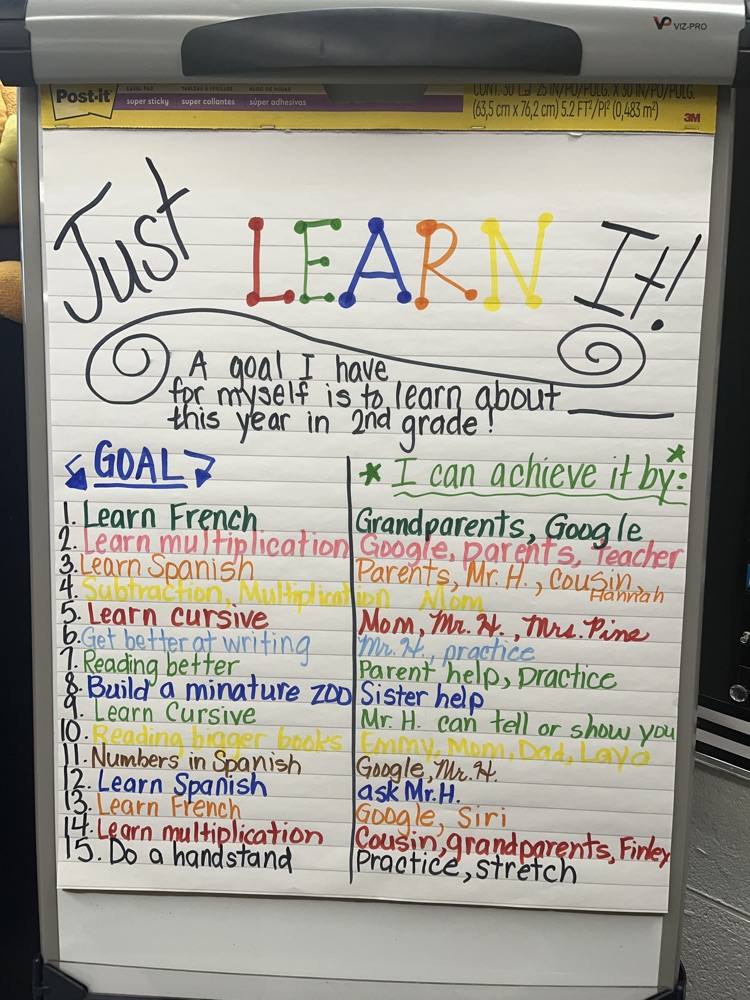 VP VIZ-PRO
Post-it
EASEL PAD TABLEAU À FEUILLES BLOC DE HOJAS
super sticky super collantes súper adhesivas
CONT. 30 25 IN/PO/PULG. X 30 IN/PO/PULG.
(63,5 cm x 76,2 cm) 5.2 FT²/PI² (0,483 m²)
3M
Just LEARN It!
A goal I have
for myself is to learn about
this year in 2nd grade!
GOAL
I can achieve it by:
1. Learn French Grandparents, Google
2. Learn multiplication Google, parents, teacher
3. Learn Spanish Parents, Mr. H., cousin, Hannah
4. Subtraction, Multiplication Mom
5. Learn cursive Mom, Mr. H., Mrs. Pine
6. Get better at writing Mr. H, practice
7. Reading better Parent help, practice
8. Build a minature zoo Sister help
9. Learn Cursive Mr. H. can tell or show you
10. Reading bigger books Emmy, Mom, Dad, Layla
11. Numbers in Spanish Google, Mr. H.
12. Learn Spanish ask Mr. H.
13. Learn French Google, Siri
14. Learn multiplication Cousin, grandparents, Finley
15. Do a handstand Practice, stretch